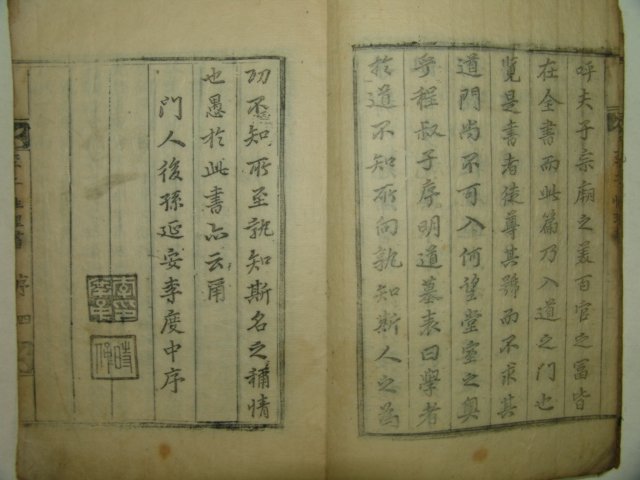 呼夫子宗廟之美百官之富皆
在全書而此篇乃入道之門也
覽是書者徒尊其號而不求其
道門尚不可入何望堂室之奥
乎程叔子序明道墓表曰學者
於道不知所向孰知斯人之為
功不知所至孰知斯名之稱情
也愚於此書亦云爾
門人後孫延安李度中序
序 四